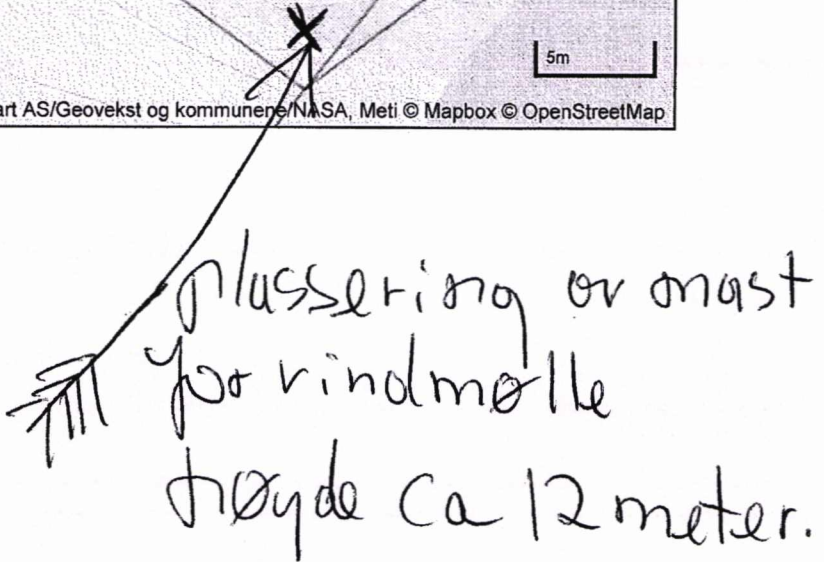 5m
art AS/Geovekst og kommunene/NASA, Meti © Mapbox © OpenStreetMap
plassering av mast
for vindmølle
høyde ca 12 meter.